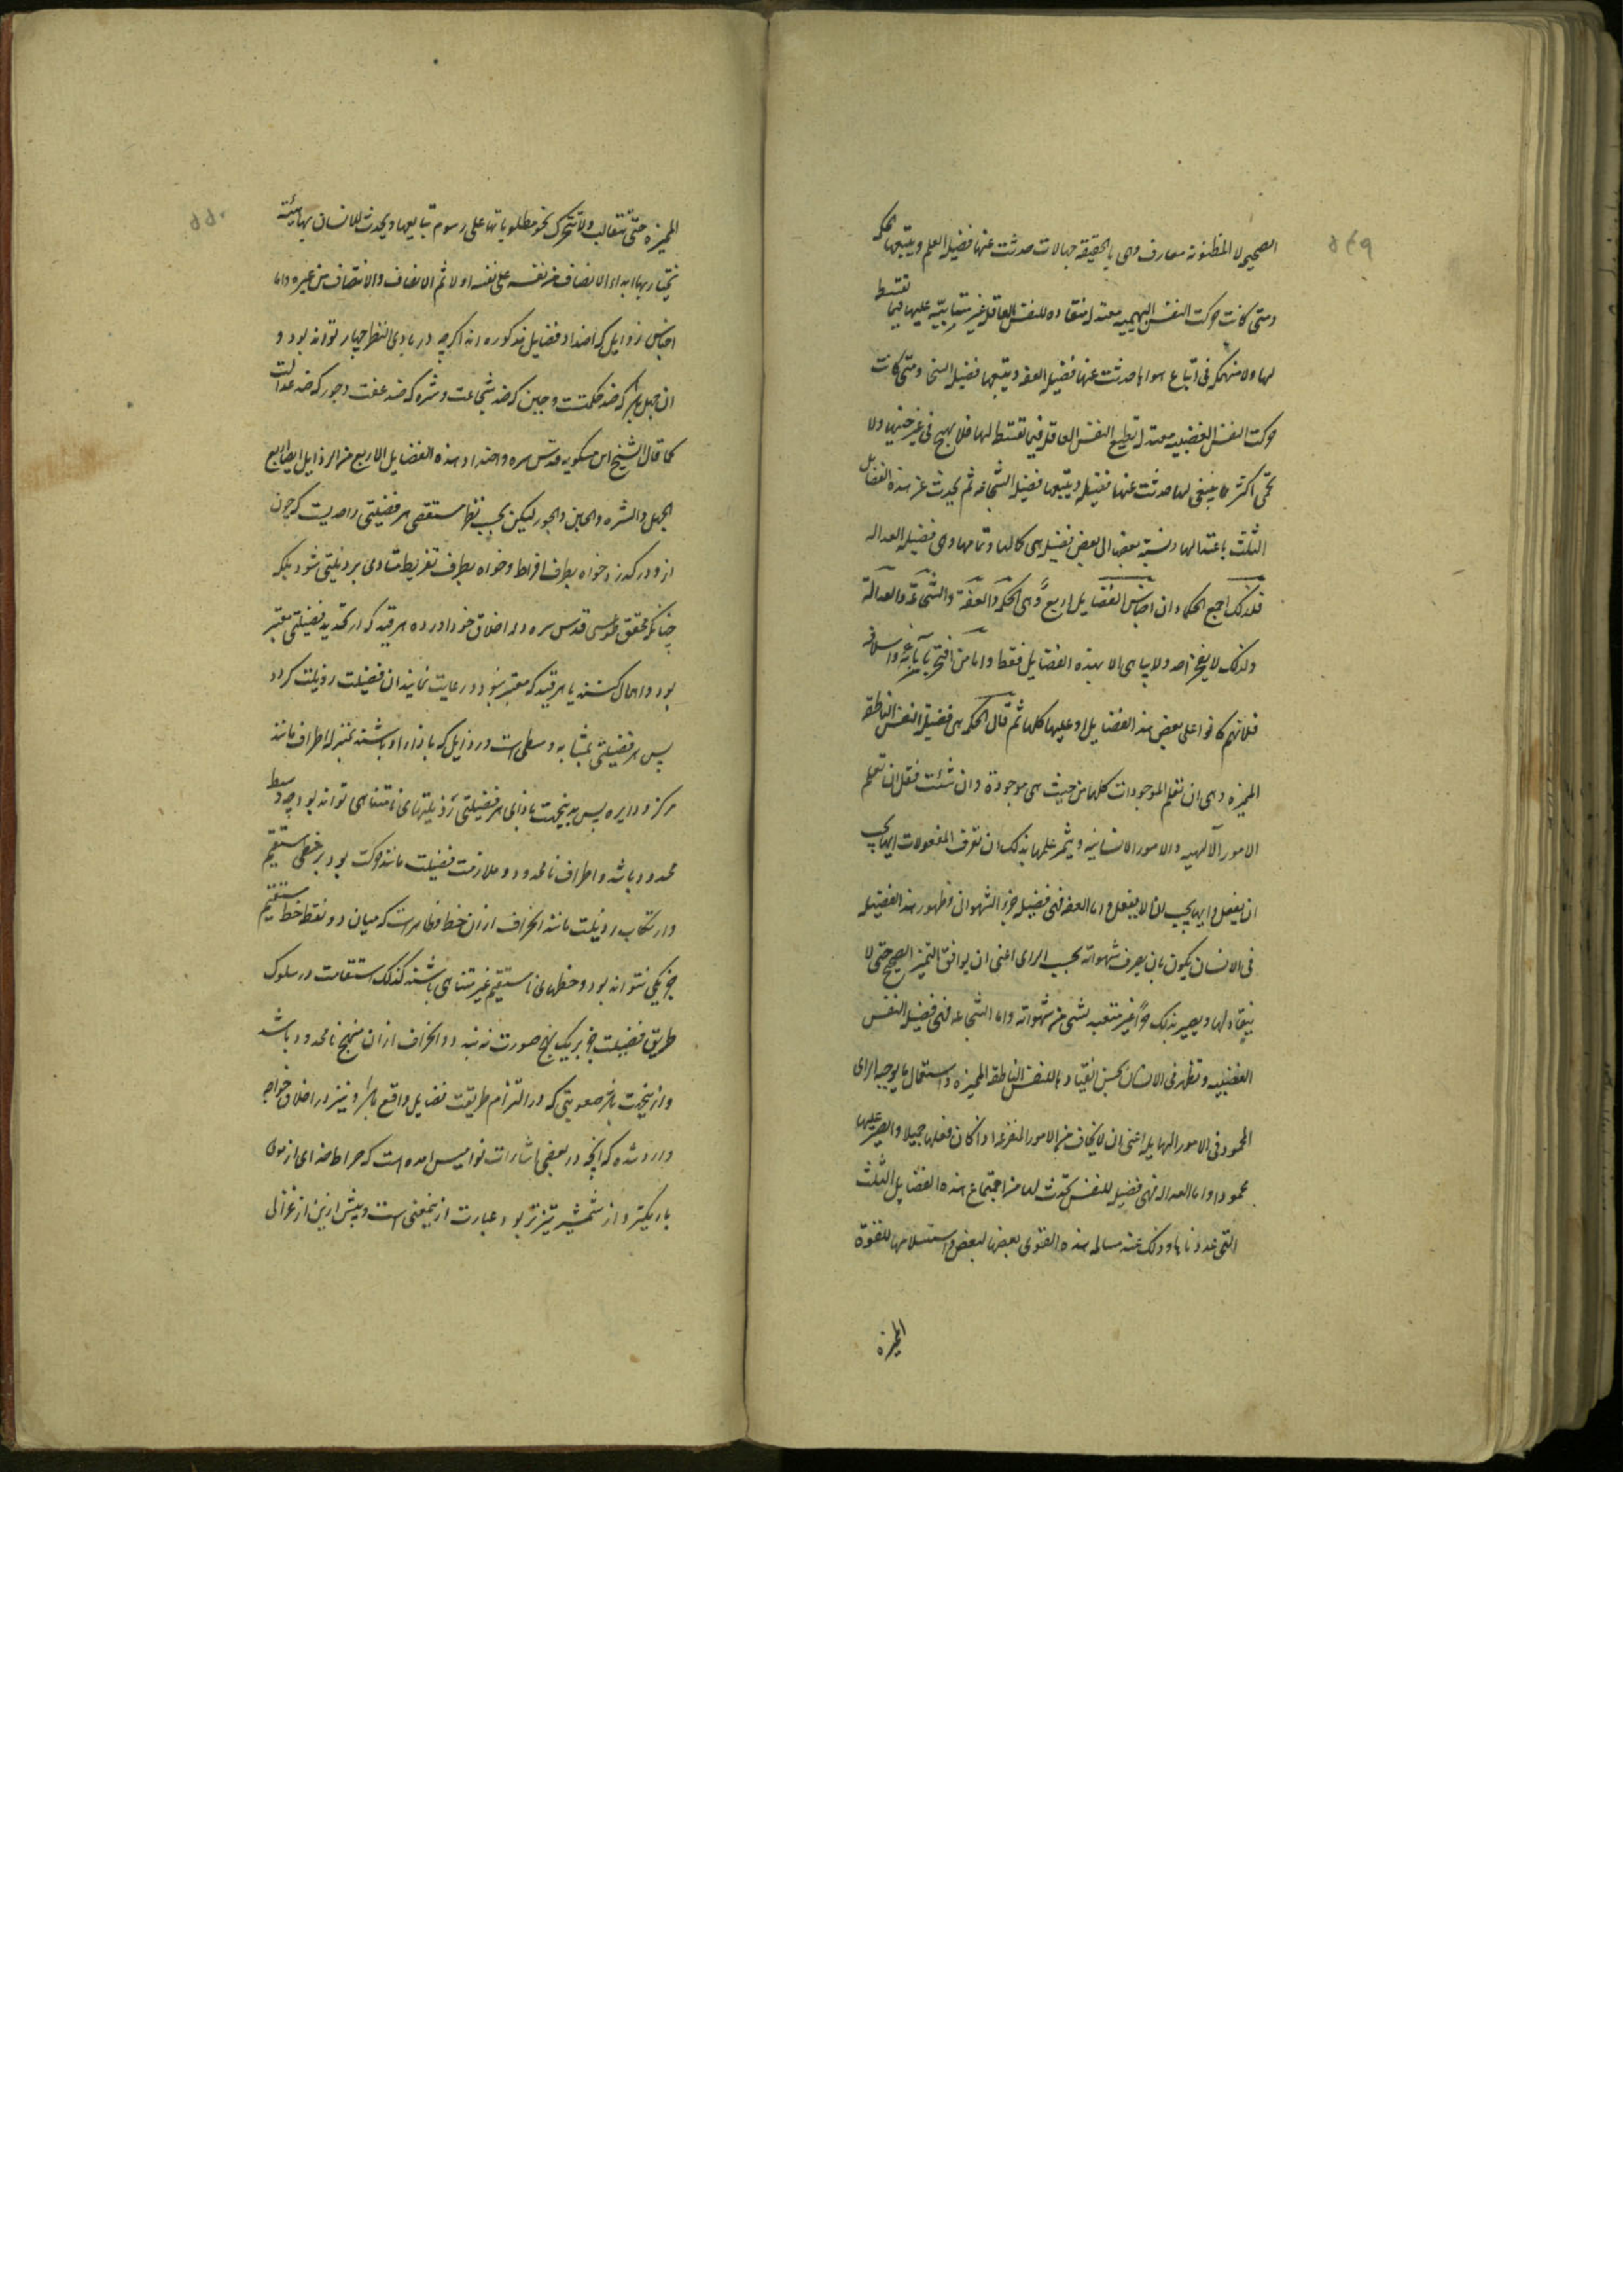 ۵۴۹
الصحیحه لا المظنونة معارف وهی بالحقیقه جهالات حدثت عنها فضیله العلم ویتبعها الحکمه
ومتی کانت حرکت النفس البهیمیه معتدله منقاده للنفس العاقله غیر متابیّه علیها فیما تقسط
لها ولا منهمکه فی اتباع هواها حدثت عنها فضیله العفه ویتبعها فضیله السخا ومتی کانت
حرکت النفس الغضبیه معتدله تطیع النفس العاقله فیما تقسط لها فلا یهیج فی غیر حینها ولا
تحمی اکثر مما ینبغی لها حدثت عنها فضیله ویتبعها فضیله الشجاعه ثم یحدث عن هذه الفضایل
الثلث باعتدالها ونسبة بعضها الی بعض فضیله هی کمالها وتمامها وهی فضیله العداله
فلذلک اجمع الحکماء ان اجناس الفضایل اربع وهی الحکمة والعفة والشجاعة والعدالة
ولذلک لا یفتخر احد ولا یباهی الا بهذه الفضایل فقط واما من افتخر بآبائه واسلافه
فلانهم کانوا علی بعض هذه الفضایل او علیها کلها ثم قال الحکمه هی فضیلة النفس الناطقه
الممیزه وهی ان تعلم الموجودات کلها من حیث هی موجودة وان شئت فقل ان تعلم
الامور الآلهیه والامور الانسانیه ویثمر علمها بذلک ان تعرف المعقولات ایها یجب
ان یفعل وایها یجب ان لا یفعل واما العفه فهی فضیله جزء الشهوانی وظهور هذه الفضیله
فی الانسان یکون بان یصرف شهواته بحسب الرای اعنی ان یوافق التمیز الصحیح حتی لا
ینقاد لها ویصیر بذلک حرّاً غیر متعبد بشی من شهواته واما الشجاعه فهی فضیله النفس
الغضبیه وتظهر فی الانسان بحسن انقیادها للنفس الناطقه الممیزه واستعمال ما یوجبه الرای
المحمود فی الامور الهایله اعنی ان لا یخاف من الامور المفزعه اذا کان فعلها جمیلا والصبر علیها
محمودا واما العداله فهی فضیله للنفس تحدث لها من اجتماع هذه الفضایل الثلث
التی عددناها وذلک عند مسالمه هذه القوی بعضها لبعض واستسلامها للقوة
الممیزه
۵۵۰
الممیزه حتی لا تتغالب ولا تتحرک نحو مطلوباتها علی رسوم تبایعها ویحدث للانسان بها هیئته
یختار بها ابدا الانصاف من نفسه علی نفسه اولا ثم الانصاف والانتصاف من غیره واما
اجناس رذایل که اضداد فضایل مذکوره اند اگرچه در بادی النظر چهار تواند بود و
ان جهل باشد که ضد حکمتست وجبن که ضد شجاعت وشره که ضد عفت وجور که ضد عدالت
کما قال الشیخ ابن مسکویه قدس سره واضداد هذه الفضایل الاربع من الرذایل ایضا اربع
الجهل والشره والجبن والجور لیکن بحسب نظر مستقصی هر فضیلتی را حدیست که چون
از و درگذرد خواه بطرف افراط وخواه بطرف تفریط متادی بر ذیلتی شود بلکه
چنانکه محقق طوسی قدس سره در اخلاق خود اورده هر قید که در تحدید فضیلتی معتبر
بود واهمال کنند یا هر قید که معتبر نبود و رعایت نمایند ان فضیلت رذیلت گردد
پس هر فضیلتی بمثابه وسطی است ورذایل که بازاء او باشند بمنزله اطراف مانند
مرکز ودایره پس بدینجهت بازای هر فضیلتی رذیلتهای نامتناهی تواند بود چه وسط
محدود باشد واطراف نامحدود وملازمت فضیلت مانند حرکت بود بر خطی مستقیم
وارتکاب رذیلت مانند انحراف از ان خط وظاهر است که میان دو نقطه خط مستقیم
جز یکی نتواند بود وخطهای نامستقیم غیر متناهی باشند کذلک استقامت در سلوک
طریق فضیلت جز بریک نهج صورت نه بندد وانحراف از ان منهج نامحدود باشد
وازینجهت باشد صعوبتی که در التزام طریقت فضایل واقع باشد ونیز در اخلاق خواجه
وارد شده که انچه در بعضی اشارات نوامیس امده است که صراط خدای از موی
باریکتر واز شمشیر تیزتر بود عبارت از ینمعنی است وپیش ازین از غزالی